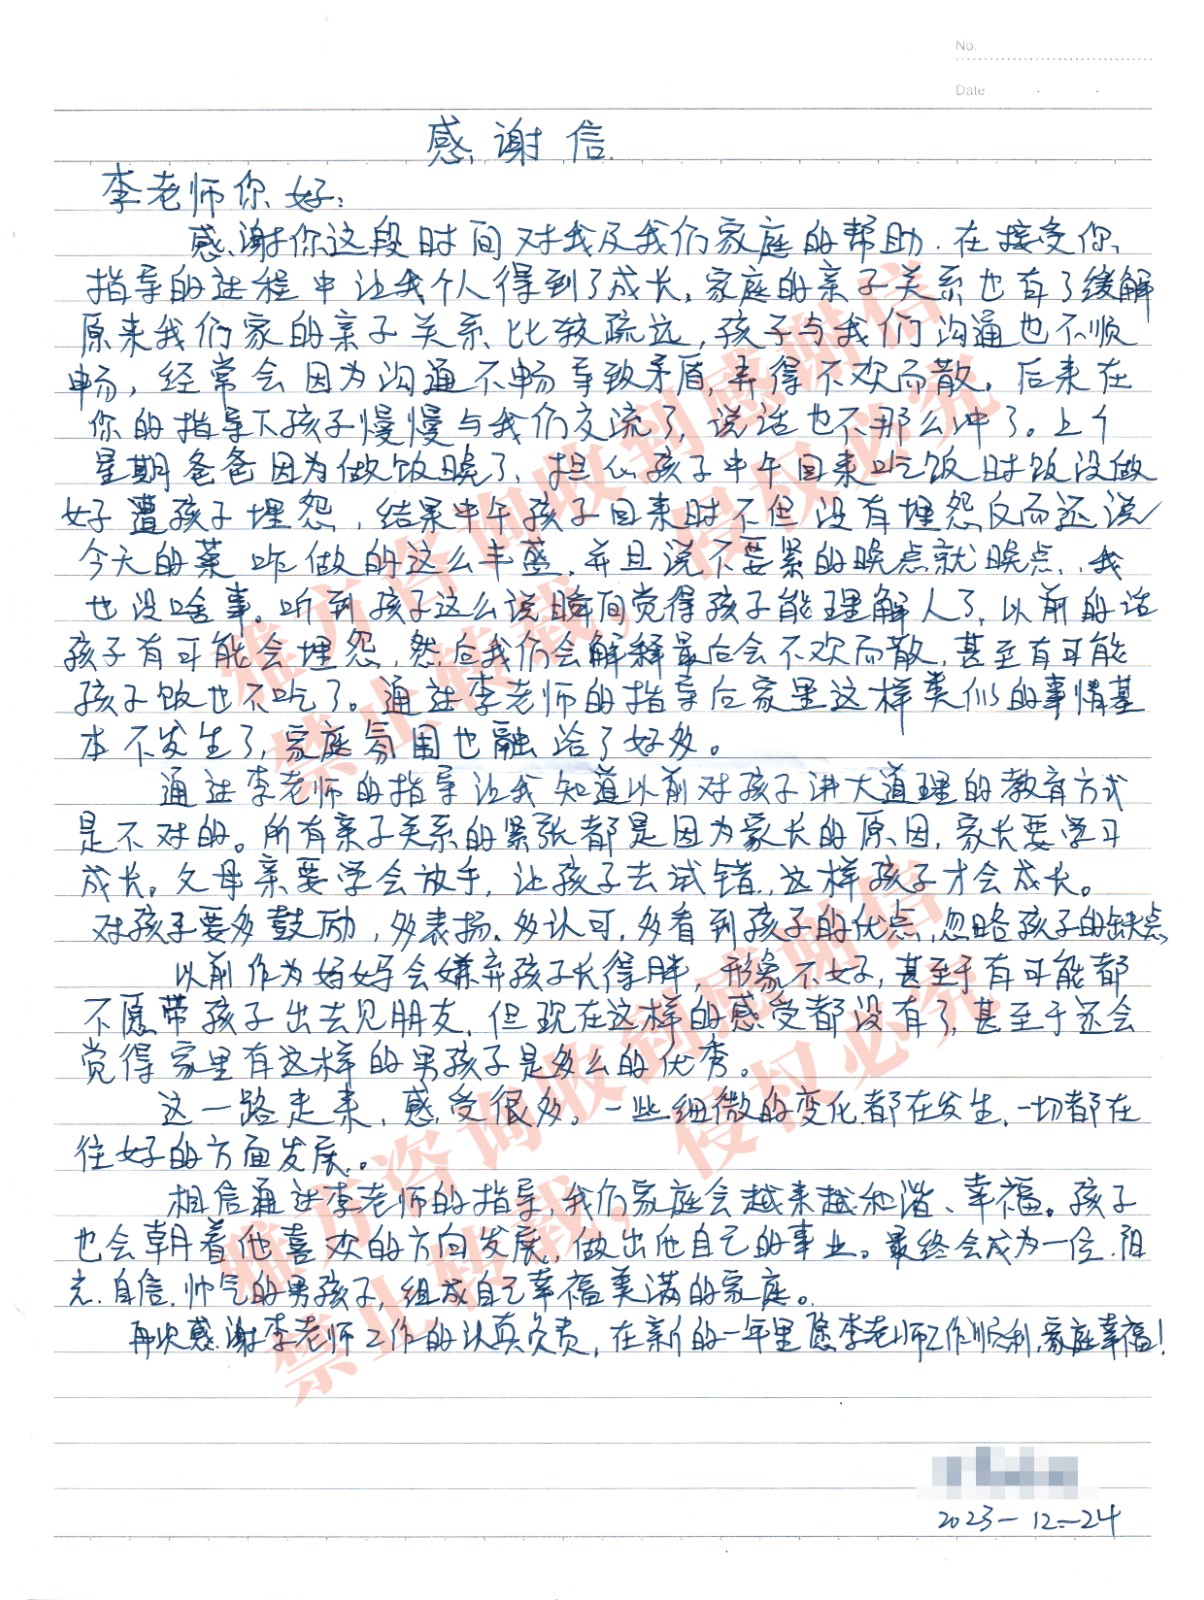 No.
Date
感谢信
李老师你好:
感谢你这段时间对我及我们家庭的帮助.在接受你
指导的过程中让我个人得到了成长,家庭的亲子关系也有了缓解
原来我们家的亲子关系比较疏远,孩子与我们沟通也不顺
畅,经常会因为沟通不畅导致矛盾,弄得不欢而散。后来在
你的指导下孩子慢慢与我们交流了,说话也不那么冲了。上个
星期爸爸因为做饭晚了,担心孩子中午回来吃饭时饭没做
好遭孩子埋怨,结果中午孩子回来时不但没有埋怨反而还说
今天的菜咋做的这么丰盛,并且说不要紧的晚点就晚点,我
也没啥事。听到孩子这么说瞬间觉得孩子能理解人了,以前的话
孩子有可能会埋怨,然后我们会解释最后会不欢而散,甚至有可能
孩子饭也不吃了。通过李老师的指导后家里这样类似的事情基
本不发生了,家庭氛围也融洽了好多。
通过李老师的指导让我知道以前对孩子讲大道理的教育方式
是不对的。所有亲子关系的紧张都是因为家长的原因,家长要学习
成长。父母亲要学会放手,让孩子去试错,这样孩子才会成长。
对孩子要多鼓励,多表扬.多认可,多看到孩子的优点,忽略孩子的缺点
以前作为妈妈会嫌弃孩子长得胖,形象不好,甚至于有可能都
不愿带孩子出去见朋友,但现在这样的感受都没有了,甚至于还会
觉得家里有这样的男孩子是多么的优秀。
这一路走来,感受很多。一些细微的变化都在发生,一切都在
往好的方面发展。
相信通过李老师的指导,我们家庭会越来越和谐、幸福。孩子
也会朝着他喜欢的方向发展,做出他自己的事业。最终会成为一位阳
光.自信.帅气的男孩子,组成自己幸福美满的家庭。
再次感谢李老师工作的认真负责,在新的一年里愿李老师工作顺利,家庭幸福!
2023-12-24
雅方咨询收到感谢信
禁止转载,侵权必究
雅方咨询收到感谢信
禁止转载,侵权必究